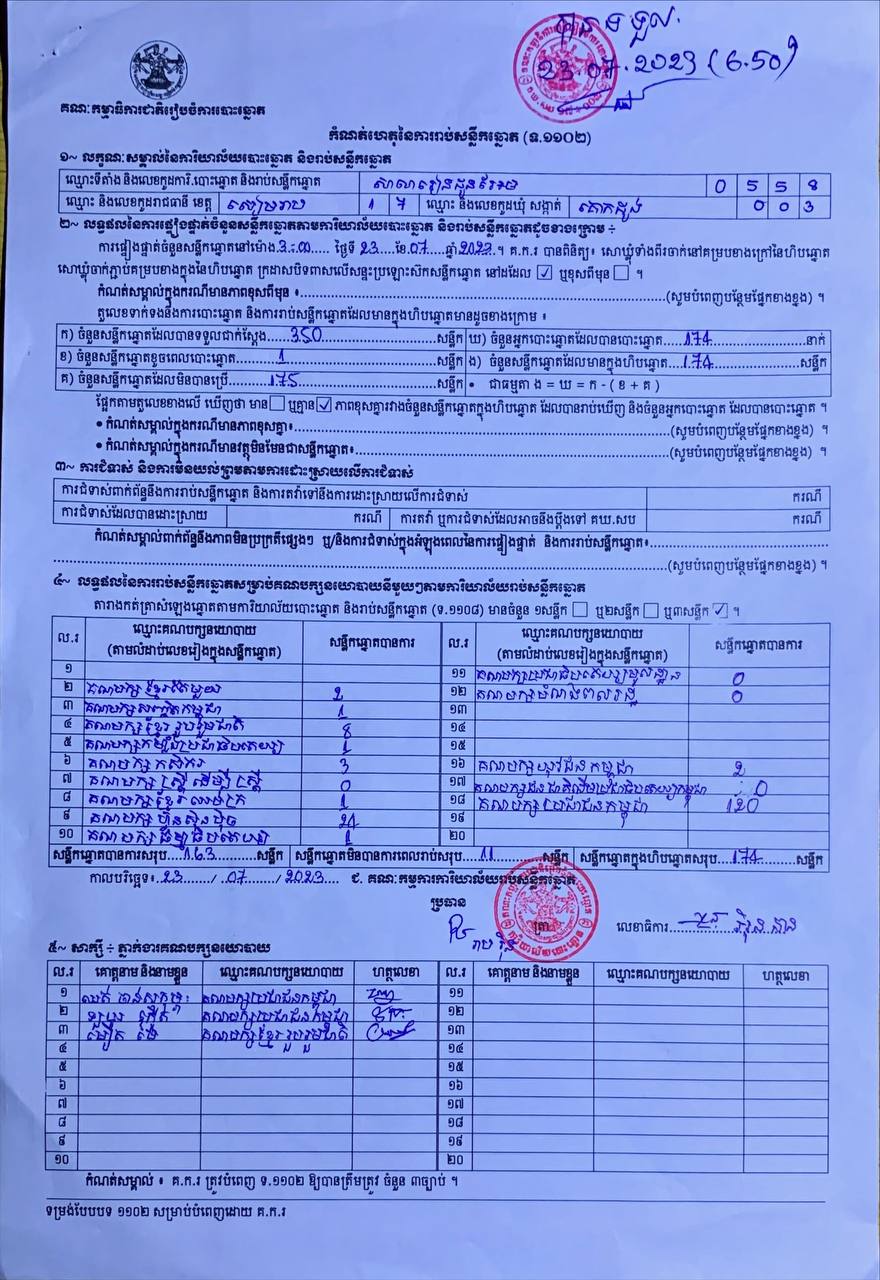 23.07.2023 (6.50)
គណៈកម្មាធិការជាតិរៀបចំការបោះឆ្នោត
កំណត់ហេតុនៃការរាប់សន្លឹកឆ្នោត (ទ.១១០២)
១~ លក្ខណៈសម្គាល់នៃការិយាល័យបោះឆ្នោត និងរាប់សន្លឹកឆ្នោត
ឈ្មោះទីតាំង និងលេខកូដការិ.បោះឆ្នោត និងរាប់សន្លឹកឆ្នោត សាលារៀន 0 5 5 8
ឈ្មោះ និងលេខកូដរាជធានី ខេត្ត សៀមរាប 1 7 ឈ្មោះ និងលេខកូដឃុំ សង្កាត់ គោកដូង 0 0 3
២~ លទ្ធផលនៃការផ្ទៀងផ្ទាត់ចំនួនសន្លឹកឆ្នោតតាមការិយាល័យបោះឆ្នោត និងរាប់សន្លឹកឆ្នោតដូចខាងក្រោម ÷
ការផ្ទៀងផ្ទាត់ចំនួនសន្លឹកឆ្នោតនៅម៉ោង ថ្ងៃទី 23 ខែ 07 ឆ្នាំ 2023 ។ គ.ក.រ បានពិនិត្យ៖ សោឃ្លុំទាំងពីរចាក់នៅគម្របខាងក្រៅនៃហិបឆ្នោត
សោឃ្លុំចាក់ភ្ជាប់គម្របខាងក្នុងនៃហិបឆ្នោត ក្រដាសបិទពាសលើសន្ទះប្រឡោះសិកសន្លឹកឆ្នោត នៅដដែល ☑ ឬខុសពីមុន ☐ ។
កំណត់សម្គាល់ក្នុងករណីមានភាពខុសពីមុន ៖ (សូមបំពេញបន្ថែមផ្នែកខាងខ្នង) ។
តួលេខទាក់ទងនៃការបោះឆ្នោត និងការរាប់សន្លឹកឆ្នោតដែលមានក្នុងហិបឆ្នោតមានដូចខាងក្រោម ៖
ក) ចំនួនសន្លឹកឆ្នោតដែលបានទទួលជាក់ស្តែង 350 សន្លឹក ឃ) ចំនួនអ្នកបោះឆ្នោតដែលបានបោះឆ្នោត 174 នាក់
ខ) ចំនួនសន្លឹកឆ្នោតខូចពេលបោះឆ្នោត 1 សន្លឹក ង) ចំនួនសន្លឹកឆ្នោតដែលមានក្នុងហិបឆ្នោត 174 សន្លឹក
គ) ចំនួនសន្លឹកឆ្នោតដែលមិនបានប្រើ 175 សន្លឹក • ជាធម្មតា ង = ឃ = ក - ( ខ + គ )
ផ្អែកតាមតួលេខខាងលើ ឃើញថា មាន ☐ ឬគ្មាន ☑ ភាពខុសគ្នារវាងចំនួនសន្លឹកឆ្នោតក្នុងហិបឆ្នោត ដែលបានរាប់ឃើញ និងចំនួនអ្នកបោះឆ្នោត ដែលបានបោះឆ្នោត ។
• កំណត់សម្គាល់ក្នុងករណីមានភាពខុសគ្នា៖ (សូមបំពេញបន្ថែមផ្នែកខាងខ្នង) ។
• កំណត់សម្គាល់ក្នុងករណីមានវត្ថុមិនមែនជាសន្លឹកឆ្នោត៖ (សូមបំពេញបន្ថែមផ្នែកខាងខ្នង) ។
៣~ ការជំទាស់ និងការមិនយល់ព្រមតាមការដោះស្រាយលើការជំទាស់
ការជំទាស់ពាក់ព័ន្ធនឹងការរាប់សន្លឹកឆ្នោត និងការតវ៉ាទៅនឹងការដោះស្រាយលើការជំទាស់ ករណី
ការជំទាស់ដែលបានដោះស្រាយ ករណី ការតវ៉ា ឬការជំទាស់ដែលអាចនឹងប្តឹងទៅ គឃ.សប ករណី
កំណត់សម្គាល់ពាក់ព័ន្ធនឹងភាពមិនប្រក្រតីផ្សេងៗ ឬ/និងការជំទាស់ក្នុងអំឡុងពេលនៃការផ្ទៀងផ្ទាត់ និងការរាប់សន្លឹកឆ្នោត៖
(សូមបំពេញបន្ថែមផ្នែកខាងខ្នង) ។
៤~ លទ្ធផលនៃការរាប់សន្លឹកឆ្នោតសម្រាប់គណបក្សនយោបាយនីមួយៗតាមការិយាល័យរាប់សន្លឹកឆ្នោត
តារាងកត់ត្រាសំឡេងឆ្នោតតាមការិយាល័យបោះឆ្នោត និងរាប់សន្លឹកឆ្នោត (ទ.១១០៨) មានចំនួន ១សន្លឹក ☐ ឬ២សន្លឹក ☐ ឬ៣សន្លឹក ☑ ។
ល.រ ឈ្មោះគណបក្សនយោបាយ (តាមលំដាប់លេខរៀងក្នុងសន្លឹកឆ្នោត) សន្លឹកឆ្នោតបានការ ល.រ ឈ្មោះគណបក្សនយោបាយ (តាមលំដាប់លេខរៀងក្នុងសន្លឹកឆ្នោត) សន្លឹកឆ្នោតបានការ
១ ១១ គណបក្សប្រជាធិបតេយ្យមូលដ្ឋាន 0
២ គណបក្សខ្មែរតែមួយ 2 ១២ គណបក្សសំណាញ់ពលរដ្ឋ 0
៣ គណបក្ស កម្ពុជា 1 ១៣
៤ គណបក្សខ្មែររួបរួមជាតិ 8 ១៤
៥ គណបក្ស ប្រជាធិបតេយ្យ 1 ១៥
៦ គណបក្សកសិករ 3 ១៦ គណបក្សយុវជនកម្ពុជា 2
៧ គណបក្សស្ត្រីដើម្បីស្ត្រី 0 ១៧ គណបក្សជនជាតិដើមប្រជាធិបតេយ្យកម្ពុជា 0
៨ គណបក្សខ្មែរ 1 ១៨ គណបក្សប្រជាជនកម្ពុជា 120
៩ គណបក្សហ៊្វុនស៊ិនប៉ិច 24 ១៩
១០ គណបក្សធម្មាធិបតេយ្យ 1 ២០
សន្លឹកឆ្នោតបានការសរុប 163 សន្លឹក សន្លឹកឆ្នោតមិនបានការពេលរាប់សរុប 11 សន្លឹក សន្លឹកឆ្នោតក្នុងហិបឆ្នោតសរុប 174 សន្លឹក
កាលបរិច្ឆេទ៖ 23 / 07 / 2023 ជ. គណៈកម្មការការិយាល័យរាប់សន្លឹកឆ្នោត
ប្រធាន
លេខាធិការ
៥~ សាក្សី ÷ ភ្នាក់ងារគណបក្សនយោបាយ
ល.រ គោត្តនាម និងនាមខ្លួន ឈ្មោះគណបក្សនយោបាយ ហត្ថលេខា ល.រ គោត្តនាម និងនាមខ្លួន ឈ្មោះគណបក្សនយោបាយ ហត្ថលេខា
១ គណបក្សប្រជាជនកម្ពុជា ១១
២ គណបក្សប្រជាជនកម្ពុជា ១២
៣ គណបក្សខ្មែររួបរួមជាតិ ១៣
៤ ១៤
៥ ១៥
៦ ១៦
៧ ១៧
៨ ១៨
៩ ១៩
១០ ២០
កំណត់សម្គាល់ ៖ គ.ក.រ ត្រូវបំពេញ ទ.១១០២ ឱ្យបានត្រឹមត្រូវ ចំនួន ៣ច្បាប់ ។
ទម្រង់បែបបទ ១១០២ សម្រាប់បំពេញដោយ គ.ក.រ